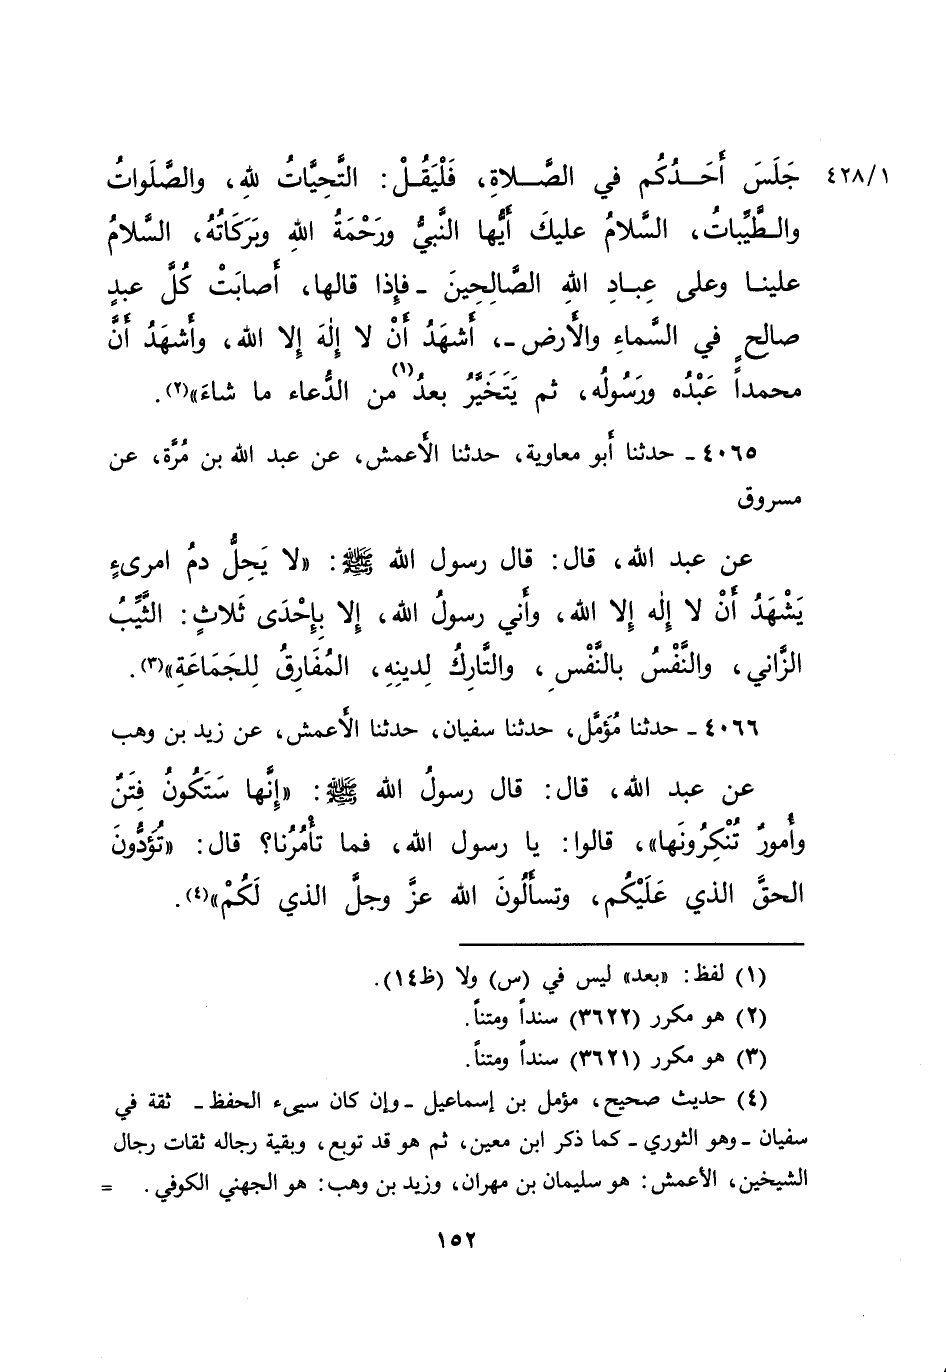 جَلَسَ أَحَـدُكُم في الصَّـلاةِ، فَلْيَقُـلْ: التَّحِيَّاتُ للهِ، والصَّلَواتُ ٤٢٨/١
والـطَّيِّباتُ، السَّلامُ عليكَ أَيُّها النَّبيُّ ورَحْمَةُ اللهِ وبَرَكَاتُهُ، السَّلامُ
علينـا وعلى عِبـادِ اللهِ الصَّالِحِينَ ـ فإِذا قالها، أَصابَتْ كُلَّ عبدٍ
صالحٍ في السَّماءِ والأَرضِ ـ، أَشهَدُ أَنْ لا إِلٰهَ إِلا الله، وأَشهَدُ أَنَّ
محمداً عَبْدُه ورَسُولُه، ثم يَتَخَيَّرُ بعدُ(١) من الدُّعاء ما شاءَ»(٢).
٤٠٦٥ ـ حدثنا أَبو معاوية، حدثنا الأَعمش، عن عبد الله بن مُرَّة، عن
مسروق
عن عبد الله، قال: قال رسول الله ﷺ: «لا يَحِلُّ دمُ امرىءٍ
يَشْهَدُ أَنْ لا إِلٰه إِلا الله، وأَني رسولُ الله، إِلا بِإِحْدَى ثَلاثٍ: الثَّيِّبُ
الزَّاني، والنَّفْسُ بالنَّفْسِ، والتَّارِكُ لدِينِهِ، المُفَارِقُ لِلجَمَاعَةِ»(٣).
٤٠٦٦ ـ حدثنا مُؤَمَّل، حدثنا سفيان، حدثنا الأَعمش، عن زيد بن وهب
عن عبد الله، قال: قال رسولُ الله ﷺ: «إِنَّها سَتَكُونُ فِتَنٌ
وأُمورٌ تُنْكِرُونَها»، قالوا: يا رسول الله، فما تأْمُرُنا؟ قال: «تُؤَدُّونَ
الحقَّ الذي عَلَيْكُم، وتسأَلُونَ الله عزَّ وجلَّ الذي لَكُمْ»(٤).
(١) لفظ: «بعد» ليس في (س) ولا (ظ١٤).
(٢) هو مكرر (٣٦٢٢) سنداً ومتناً.
(٣) هو مكرر (٣٦٢١) سنداً ومتناً.
(٤) حديث صحيح، مؤمل بن إسماعيل ـ وإن كان سيىء الحفظ ـ ثقة في
سفيان ـ وهو الثوري ـ كما ذكر ابن معين، ثم هو قد توبع، وبقية رجاله ثقات رجال
الشيخين، الأعمش: هو سليمان بن مهران، وزيد بن وهب: هو الجهني الكوفي. =
١٥٢